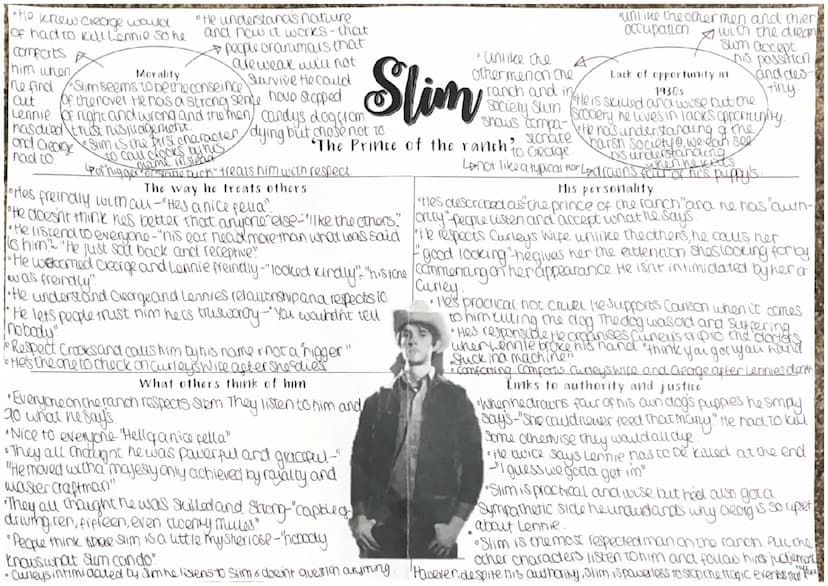 Slim
'The Prince of the ranch'
•He knew George would
of had to kill Lennie so he
comforts
him when
he find
out
Lennie
has died
and George
had to.
Morality
•Slim seems to be the conscine
of the novel He has a strong sense
of right and wrong and the men
trust his judgement.
•Slim is the first character
to call crooks by his
name instead
of "nigger" or "stable buck" treats him with respect
•He understands nature
and how it works - that
people or animals that
are weak will not
survive He could
have stopped
candys dog from
dying but chose not to
•Unlike the
other men on the
ranch and in
society slim
shows compa-
sionate
to George.
↳not like a typical man
unlike the other men and thier
occupation
with the dream
slim accept
his position
and des-
tiny.
Lack of opportunity in
1930s
•He is skilled and wise but the
society he lives in lacks opportunity.
•He has understanding of the
harsh society & we can see
his understanding
when he kills
↳drowns four of his puppy's
The way he treats others
•He's freindly with all - "He's a nice fella"
•He doesn't think he's better that anyone else - "like the others."
•He listend to everyone - "his ear heard more than what was said
to him" - "He just sat back and receptive"
•He welcomed George and Lennie freindly - "looked kindly" - "his tone
was freindly"
•He understand George and Lennie's relationship and respects it
•He lets people trust him he is trustworthy - "You wouldn't tell
nobody"
•Respect Crooks and calls him by his name & not a "nigger"
•He's the one to check on Curleys Wife after she dies
His personality
•He's described as "the prince of the ranch" and he has "auth-
ority" - people listen and accept what he says
•He respects Curleys Wife unlike the others, he calls her
"good looking" - he gives her the attention she's looking for by
commenting on her appearance He isn't intimidated by her or
Curley.
•He's practical not cruel He supports Carlson when it comes
to him killing the dog The dog was old and suffering
•He's responsible He organises Curleys trip to the doctors
when Lennie broke his hand "I think you got you hand
stuck in a machine"
•comforting comforts Curleys wife and George after Lennies death
What others think of him
•Everyone on the ranch respects Slem They listen to him and
go what he says.
•Nice to everyone "Hell of a nice fella"
•They all thought he was powerful and graceful -
"He moved with a majesty only achieved by royalty and
master craftman"
•They all thought he was skilled and strong - "capible of
driving ten, fifteen, even twenty mules"
•People think Slim is a little mysteriose - "nobody
knows what Slim can do"
•Curley is intimidated by Slim he listens to Slim & doesn't question anything
Links to authority and justice
•When he drowns four of his own dog's puppies he simply
says - "She could never feed that many" He had to kill
some otherwise they would all die
•He twice says Lennie has to be killed at the end
- "I guess we gotta get im"
•Slim is practical and wise but he'd also got a
sympathetic side he understands why George is so upset
about Lennie.
•Slim is the most respected man on the ranch. All the
other characters listen to him and follow his judgement
However, despite his authority, Slim is powerless to stop the tragic events